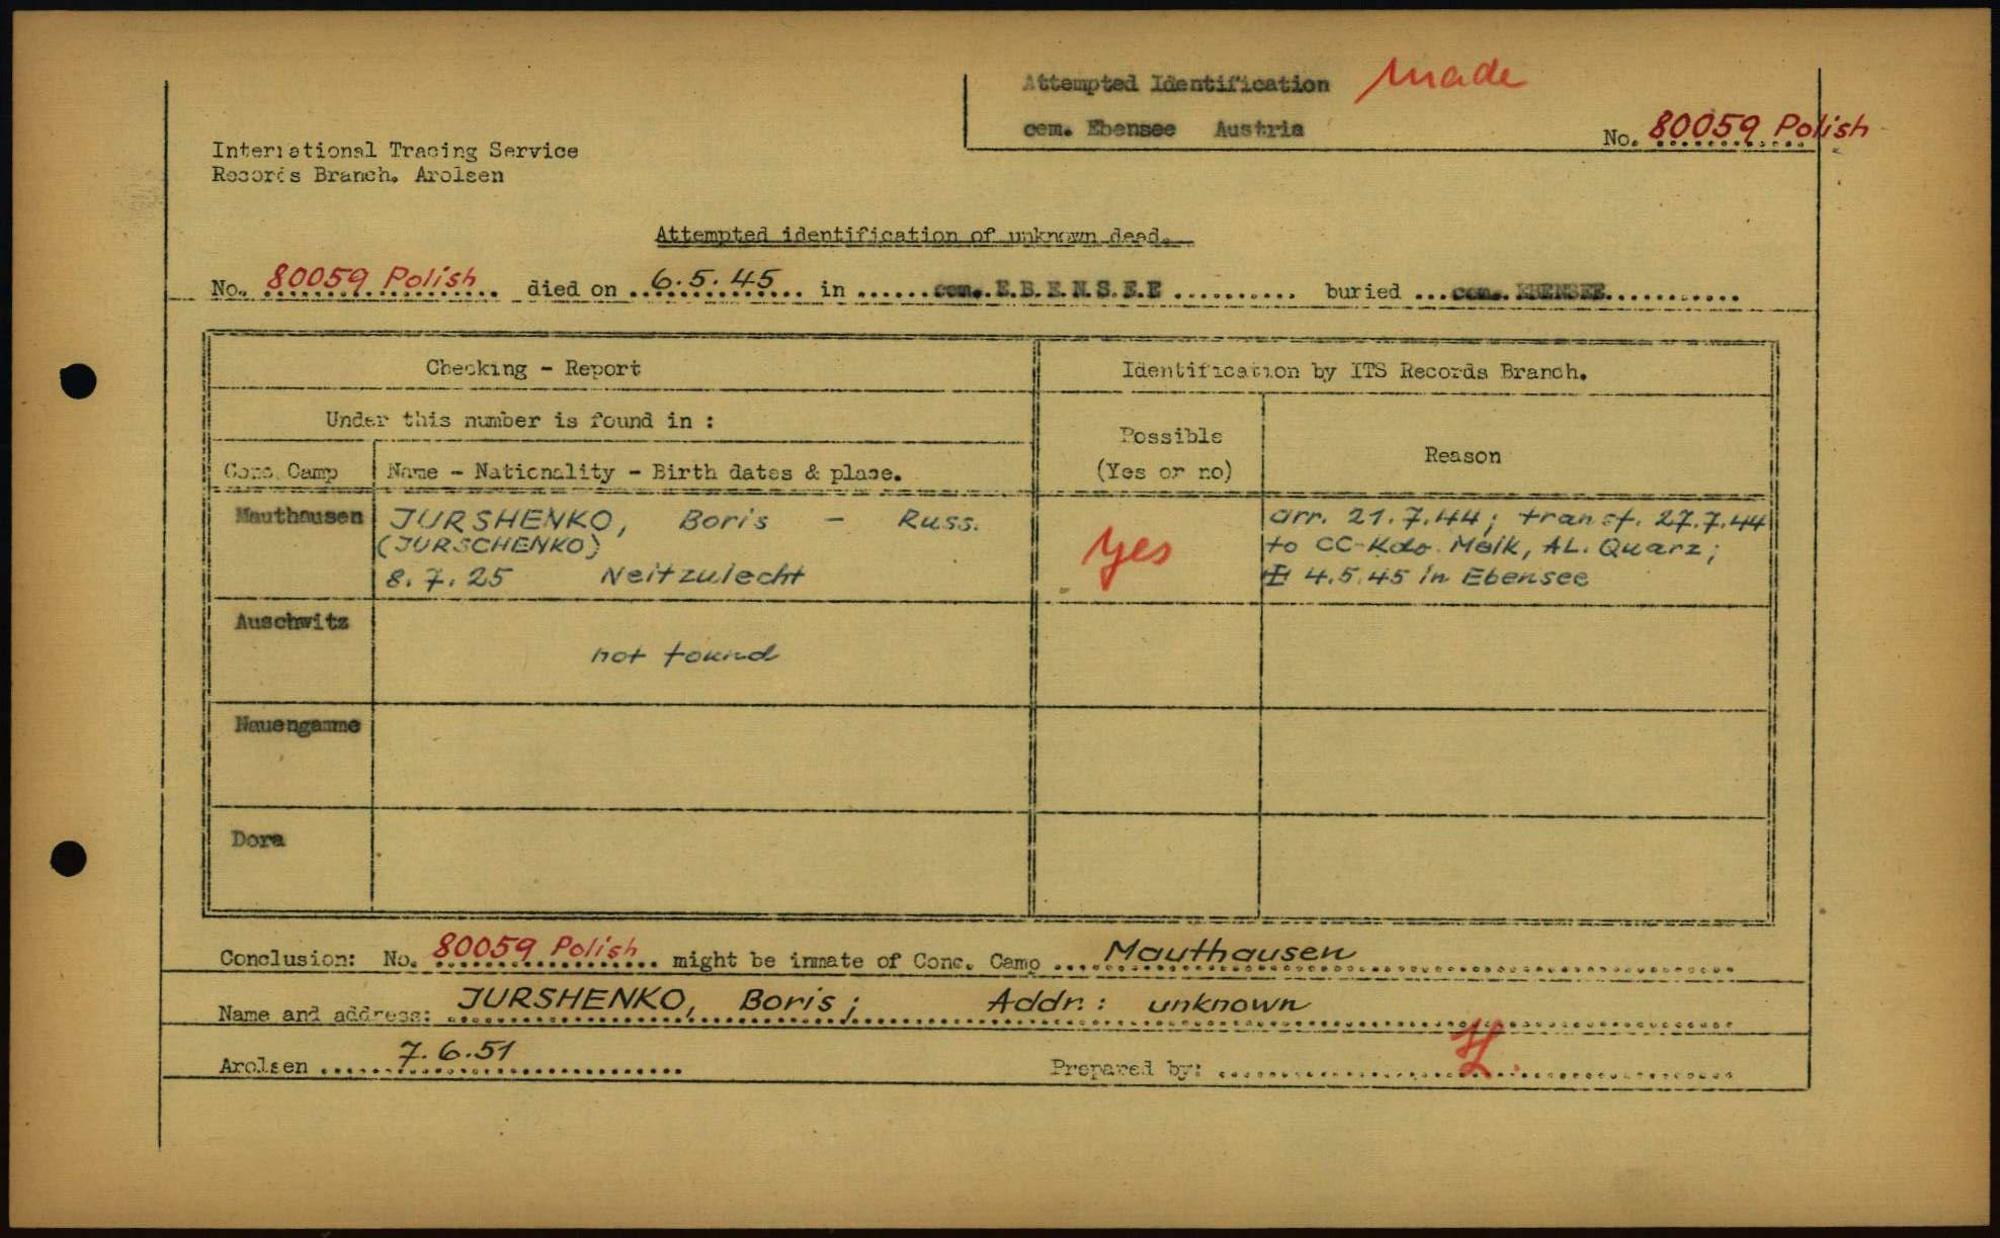 Attempted Identification made
cem. Ebensee Austria
No. 80059 Polish
International Tracing Service
Records Branch, Arolsen
Attempted identification of unknown dead.
No. 80059 Polish died on 6.5.45 in cem. E.B.E.N.S.E.E buried cem. EBENSEE
Checking - Report
Identification by ITS Records Branch.
Under this number is found in :
Possible
(Yes or no)
Reason
Conc. Camp
Name - Nationality - Birth dates & place.
Mauthausen
JURSHENKO, Boris - Russ.
(JURSCHENKO)
8.7.25 Neitzulecht
yes
arr. 21.7.44; transf. 27.7.44
to CC-Kdo. Melk, AL. Quarz;
4.5.45 in Ebensee
Auschwitz
not found
Nauengamme
Dora
Conclusion: No. 80059 Polish might be inmate of Conc. Camp Mauthausen
Name and address: JURSHENKO, Boris; Addr.: unknown
Arolsen 7.6.51
Prepared by: